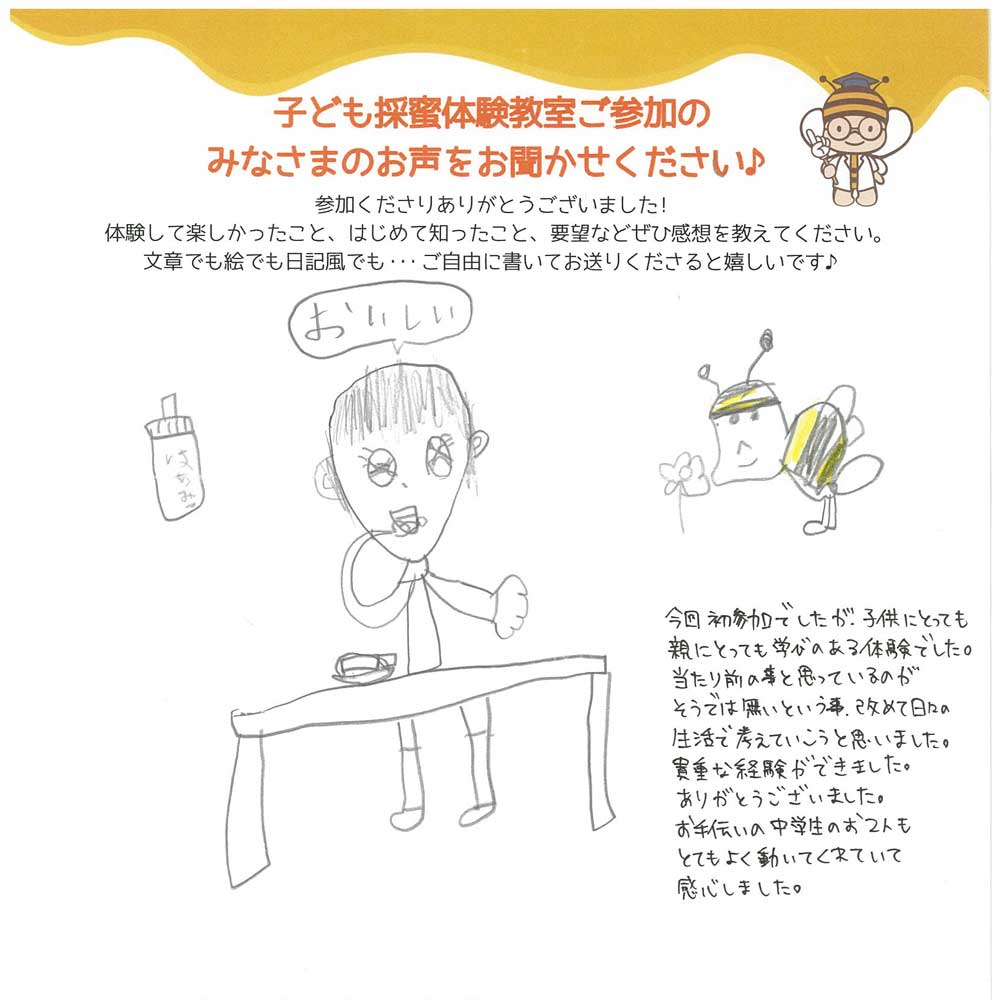 子ども採蜜体験教室ご参加の
みなさまのお声をお聞かせください♪
参加くださりありがとうございました!
体験して楽しかったこと、はじめて知ったこと、要望などぜひ感想を教えてください。
文章でも絵でも日記風でも･･･ご自由に書いてお送りくださると嬉しいです♪
おいしい
はちみつ
今回初参加でしたが、子供にとっても
親にとっても学びのある体験でした。
当たり前の事と思っているのが
そうでは無いという事、改めて日々の
生活で考えていこうと思いました。
貴重な経験ができました。
ありがとうございました。
お手伝いの中学生のお2人も
とてもよく動いてくれていて
感心しました。